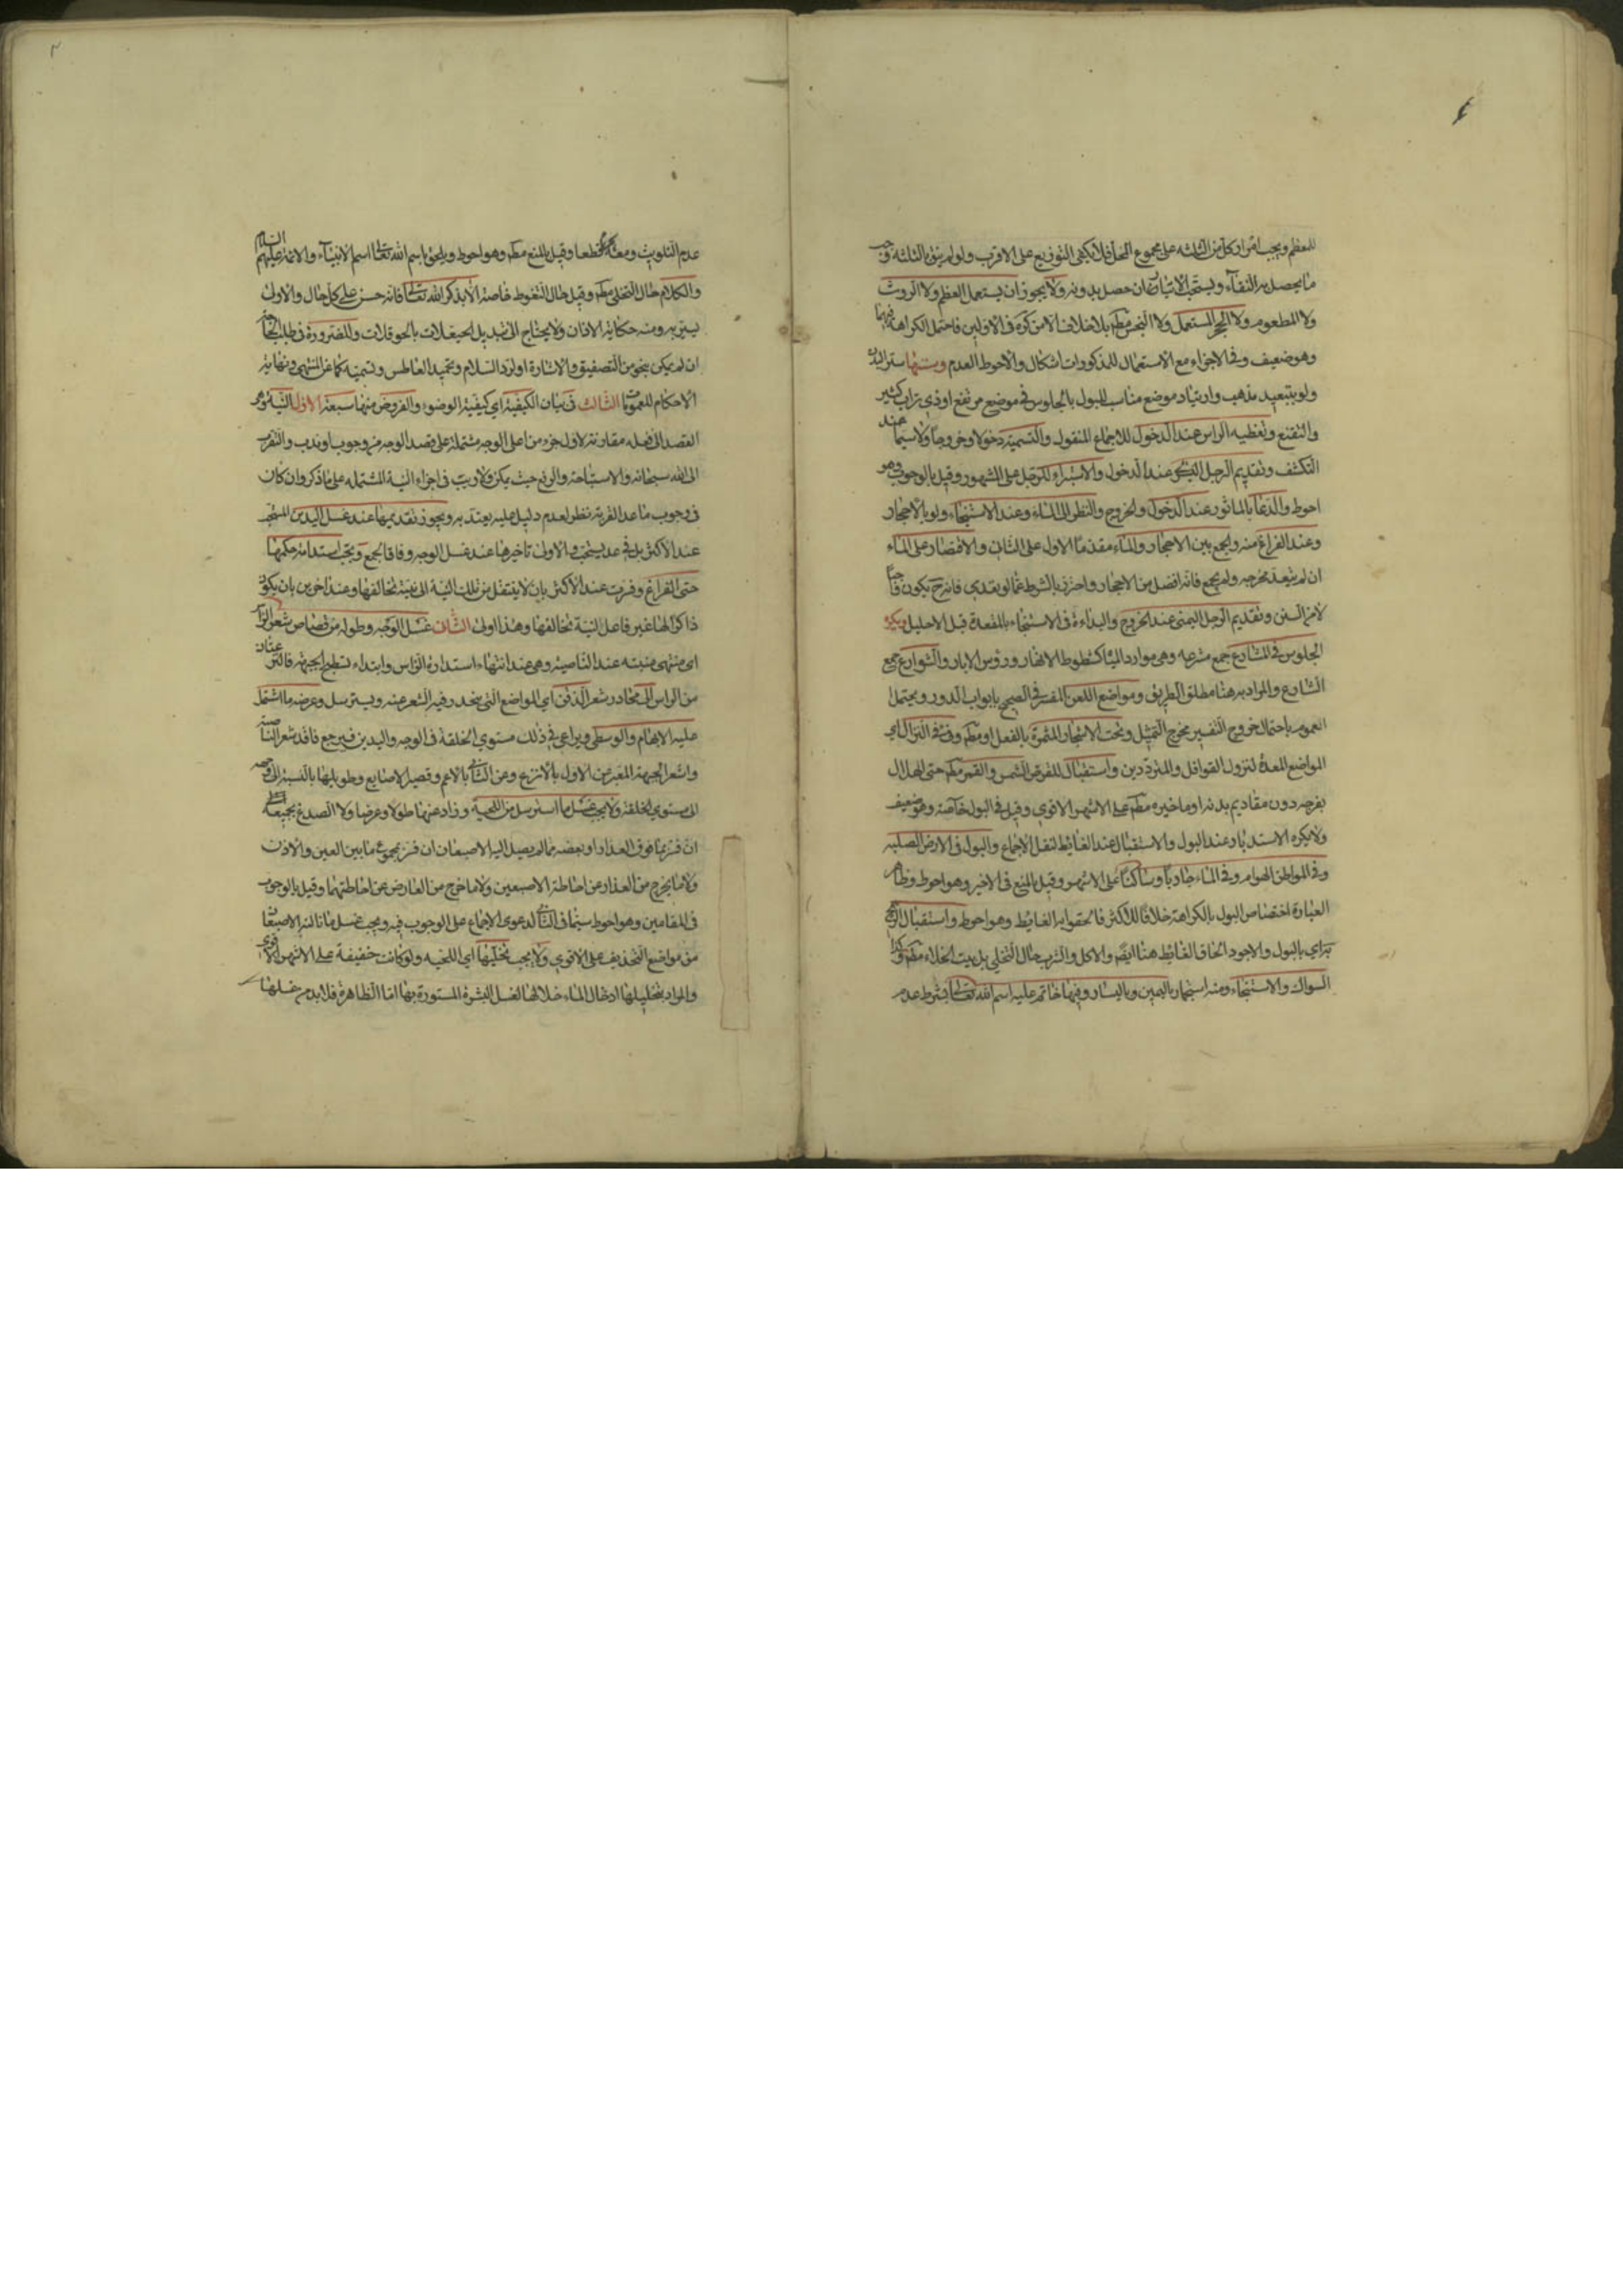 للمعظم ويجب امرار كل من الثلثه على مجموع المحل فلا يكفى التوزيع على الاقرب ولو لم ينق بالثلثة وجب
ما يحصل به النقاء ويستحب الايتار ان حصل بدونه ولا يجوز ان يستعمل العظم ولا الروث
ولا المطعوم ولا الحجر المستعمل ولا النجس مطم بلا خلاف الا من كره فى الاولين فاحتمل الكراهة فيهما
وهو ضعيف وفى الاجزاء مع الاستعمال للمذكورات اشكال والاحوط العدم وسننها ستر البدن
ولو بتبعيد مذهب وارتياد موضع مناسب للبول بالجلوس فى موضع مرتفع او ذى تراب كثير
والتقنع وتغطيه الراس عند الدخول للاجماع المنقول والتسمية دخولا وخروجا ولا سيما عند
التكشف وتقديم الرجل اليسرى عند الدخول والاستبراء للرجل على المشهور وقيل بالوجوب وهو
احوط والدعا بالماثور عند الدخول والخروج والنظر الى الماء وعند الاستنجاء ولو بالاحجار
وعند الفراغ منه والجمع بين الاحجار والماء مقدما الاول على الثانى والاقتصار على الماء
ان لم يتعد مخرجه ولم يجمع فانه افضل من الاحجار واحترز بالشرط عما لو تعدى فانه ح يكون واجبا
لا من السنن وتقديم الرجل اليمنى عند الخروج والبداءة فى الاستنجاء بالمقعدة قبل الاحليل ويكره
الجلوس فى المشارع جمع مشرعه وهى موارد المياه كشطوط الانهار ورؤس الابار والشوارع جمع
الشارع والمراد به هنا مطلق الطريق ومواضع اللعن المفسر فى الصحيح بابواب الدور ويحتمل
العموم باحتمال خروج التفسير مخرج التمثيل وتحت الاشجار المثمرة بالفعل او مطم وفى فئ النزال اى
المواضع المعدة لنزول القوافل والمترددين واستقبال للقرص الشمس والقمر مطم حتى الهلال
بفرجه دون مقاديم بدنه او ما خيره مطم على الاشهر الاقوى وقيل فى البول خاصة وهو ضعيف
ولا يكره الاستدبار عند البول والاستقبال عند الغائط لنقل الاجماع والبول فى الارض الصلبه
وفى المواطن الهوام وفى الماء جاريا وساكنا على الاشهر وقيل بالمنع فى الاخير وهو احوط وظاهر
العبارة اختصاص البول بالكراهة خلافا للاكثر فالحقوا به الغائط وهو احوط واستقبال الريح
به اى بالبول والاجود الحاق الغائط هنا ايضا والاكل والشرب حال التخلى بل بيت الخلاء مطم وكذا
السواك والاستنجاء ومنه استجمار باليمين وباليسار وفيها خاتم عليه اسم الله تعالى بشرط عدم
عدم التلويث ومعه يحرم قطعا وقيل بالمنع مطم وهو احوط ويلحق باسم الله تعالى اسم الانبياء والائمة عليهم السلام
والكلام حال التخلى مطم وقيل حال التغوط خاصة الا بذكر الله تعالى فانه حسن على كل حال والاولى
يسير به ومنه حكاية الاذان ولا يحتاج الى تبديل الحيعلات بالحوقلات وللضرورة فى طلب الحاجة
ان لم يكن بنحو من التصفيق والاشارة او لرد السلام وتحميد العاطس وتسميته كما عن المنتهى ونهاية
الاحكام للعمومات الثالث فى بيان الكيفية اى كيفية الوضوء والفروض منها سبعة الاول النية وهو
القصد الى فعله مقارنة لاول جزء من اعلى الوجه مشتملة على قصد الوجه من وجوب او ندب والتقرب
الى الله سبحانه والاستباحة والرفع حيث يمكن ولا ريب فى اجزاء النية المشتمله على ما ذكر وان كان
فى وجوب ما عدا القربة نظر لعدم دليل عليه يعتد به ويجوز تقديمها عند غسل اليدين المستحب
عند الاكثر بل فى عد يستحب والاولى تاخيرها عند غسل الوجه وفاقا لجمع ويجب استدامة حكمها
حتى الفراغ وفسرت عند الاكثر بان لا ينتقل من تلك النية الى نية تخالفها وعند اخرين بان يكون
ذاكرا لها غير فاعل لنية تخالفها وهذا اولى الثانى غسل الوجه وطوله من قصاص شعر الراس
اى منتهى منبته عند الناصية وهى عند انتهاء استدارة الراس وابتداء تسطيح الجبهة فالنزعتان
من الراس الى محادر شعر الذقن اى المواضع التى ينحدر فيه الشعر عنه ويسترسل وعرضه ما اشتمل
عليه الابهام والوسطى ويراعى فى ذلك مستوى الخلقة فى الوجه واليدين فيرجع فاقد شعر الناصية
واشعر الجبهة المعبر عن الاول بالانزع وعن الثانى بالاغم وقصير الاصابع وطويلها بالنسبة الى وجهه
الى مستوى الخلقة ولا يجب غسل ما استرسل من اللحية وزاد عنهما طولا وعرضا ولا الصدغ بجميعه
ان فسر بما فوق العذار او بعضه مما لم يصل اليه الاصبعان ان فسر بمجموع ما بين العين والاذن
ولا ما يخرج من العذار عن احاطة الاصبعين ولا ما خرج من العارض عن احاطتهما وقيل بالوجوب
فى المقامين وهو احوط سيما فى الثانى لدعوى الاجماع على الوجوب فيه ويجب غسل ما نالته الاصبعان
من مواضع التحذيف على الاقوى ولا يجب تخليلها اى اللحيه ولو كانت خفيفة على الاشهر الاقوى
والمراد بتخليلها ادخال الماء خلالها لغسل البشرة المستورة بها اما الظاهرة فلا بد من غسلها